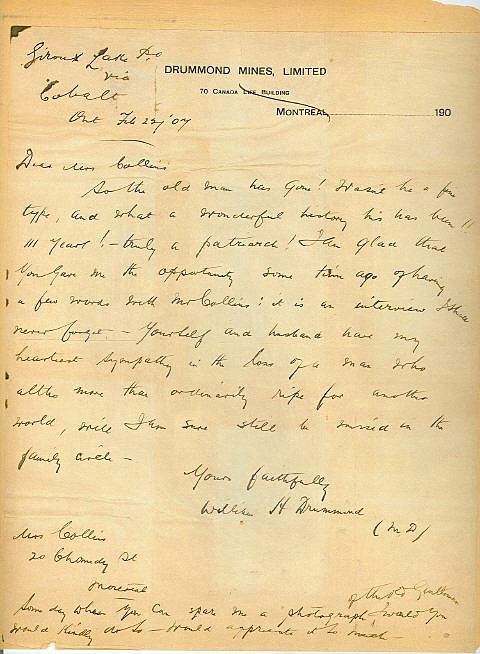 Giroux Lake P.o
via
Cobalt
Ont Feb 22/07
DRUMMOND MINES, LIMITED
70 CANADA LIFE BUILDING
MONTREAL 190
Dear Mrs Collins
So the old man has gone! Wasn't he a fine
type, and what a wonderful history his has been!!
111 years! - truly a patriarch! I am glad that
You gave me the opportunity some time ago of having
a few words with Mr Collins: it is an interview I shall
never forget - Yourself and husband have my
heartiest sympathy in the loss of a man who
altho more than ordinarily ripe for another
world, will I am sure still be missed in the
family circle -
Yours faithfully
William H Drummond
(M D)
Mrs Collins
20 St
Montreal
Some day when you can spare me a photograph of the old Gentleman would you
would kindly do so - would appreciate it so much -